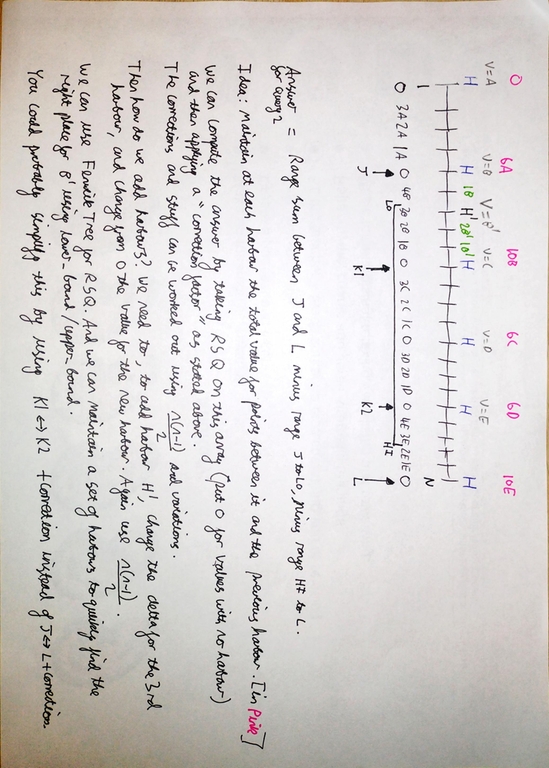 O 6A 10B 6C 6D 10E
V=A V=B V=B' V=C V=D V=E
H H 1B H' 2B' 1B' H H H H
1 N
O 3A 2A 1A O 4B 3B 2B 1B O 3C 2C 1C O 3D 2D 1D O 4E 3E 2E 1E O
Lo HI
J K1 K2 L
Answer = Range sum between J and L minus range J to Lo, minus range HI to L.
for query 2
Idea: Maintain at each harbour the total value for points between it and the previous harbour. [in Pink]
We can compute the answer by taking RSQ on this array (put O for values with no harbour)
and then applying a "correction factor" as stated above.
The corrections and stuff can be worked out using n(n-1)/2 and variations.
Then how do we add harbours? We need to, to add harbour H', change the delta for the 3rd
harbour, and change from O the value for the new harbour. Again use n(n-1)/2.
We can use Fenwick Tree for RSQ. And we can maintain a set of harbours to quickly find the
right place for B' using lower_bound/upper_bound.
You could probably simplify this by using K1 ↔ K2 + correction instead of J ↔ L + correction.